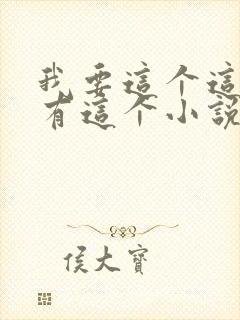 我要這个這
有這个小說
侯大寶